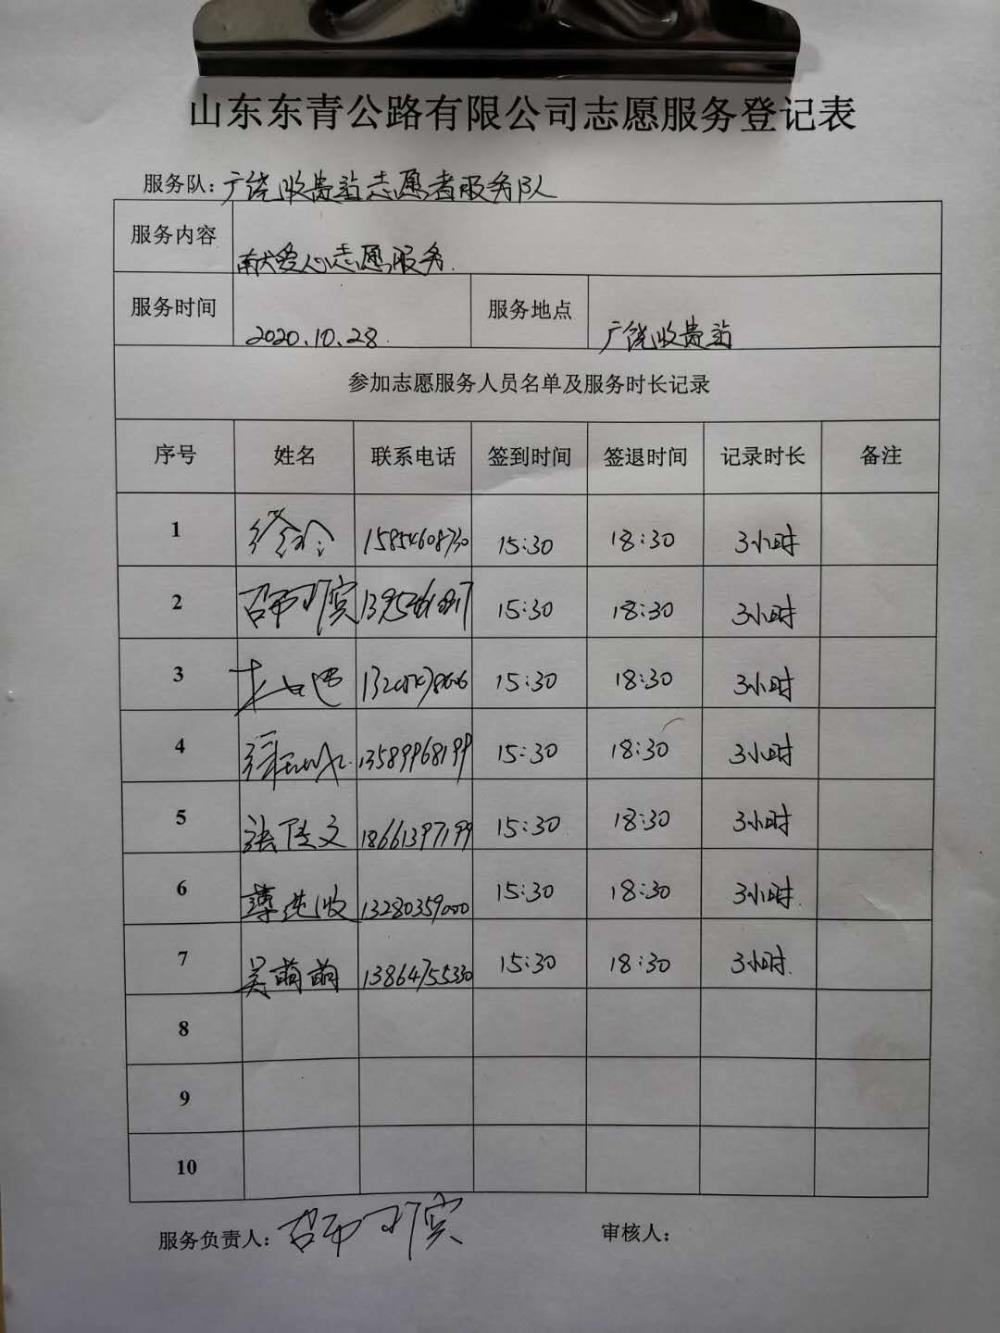 山东东青公路有限公司志愿服务登记表
服务队：广饶收费站志愿者服务队
服务内容 献爱心志愿服务.
服务时间 2020.10.28 服务地点 广饶收费站
参加志愿服务人员名单及服务时长记录
序号 姓名 联系电话 签到时间 签退时间 记录时长 备注
1 徐玲 15854608730 15:30 18:30 3小时
2 15:30 18:30 3小时
3 15:30 18:30 3小时
4 13589968199 15:30 18:30 3小时
5 张佳文 18661397199 15:30 18:30 3小时
6 13280359000 15:30 18:30 3小时.
7 吴萌萌 13864755330 15:30 18:30 3小时.
8
9
10
服务负责人： 审核人：